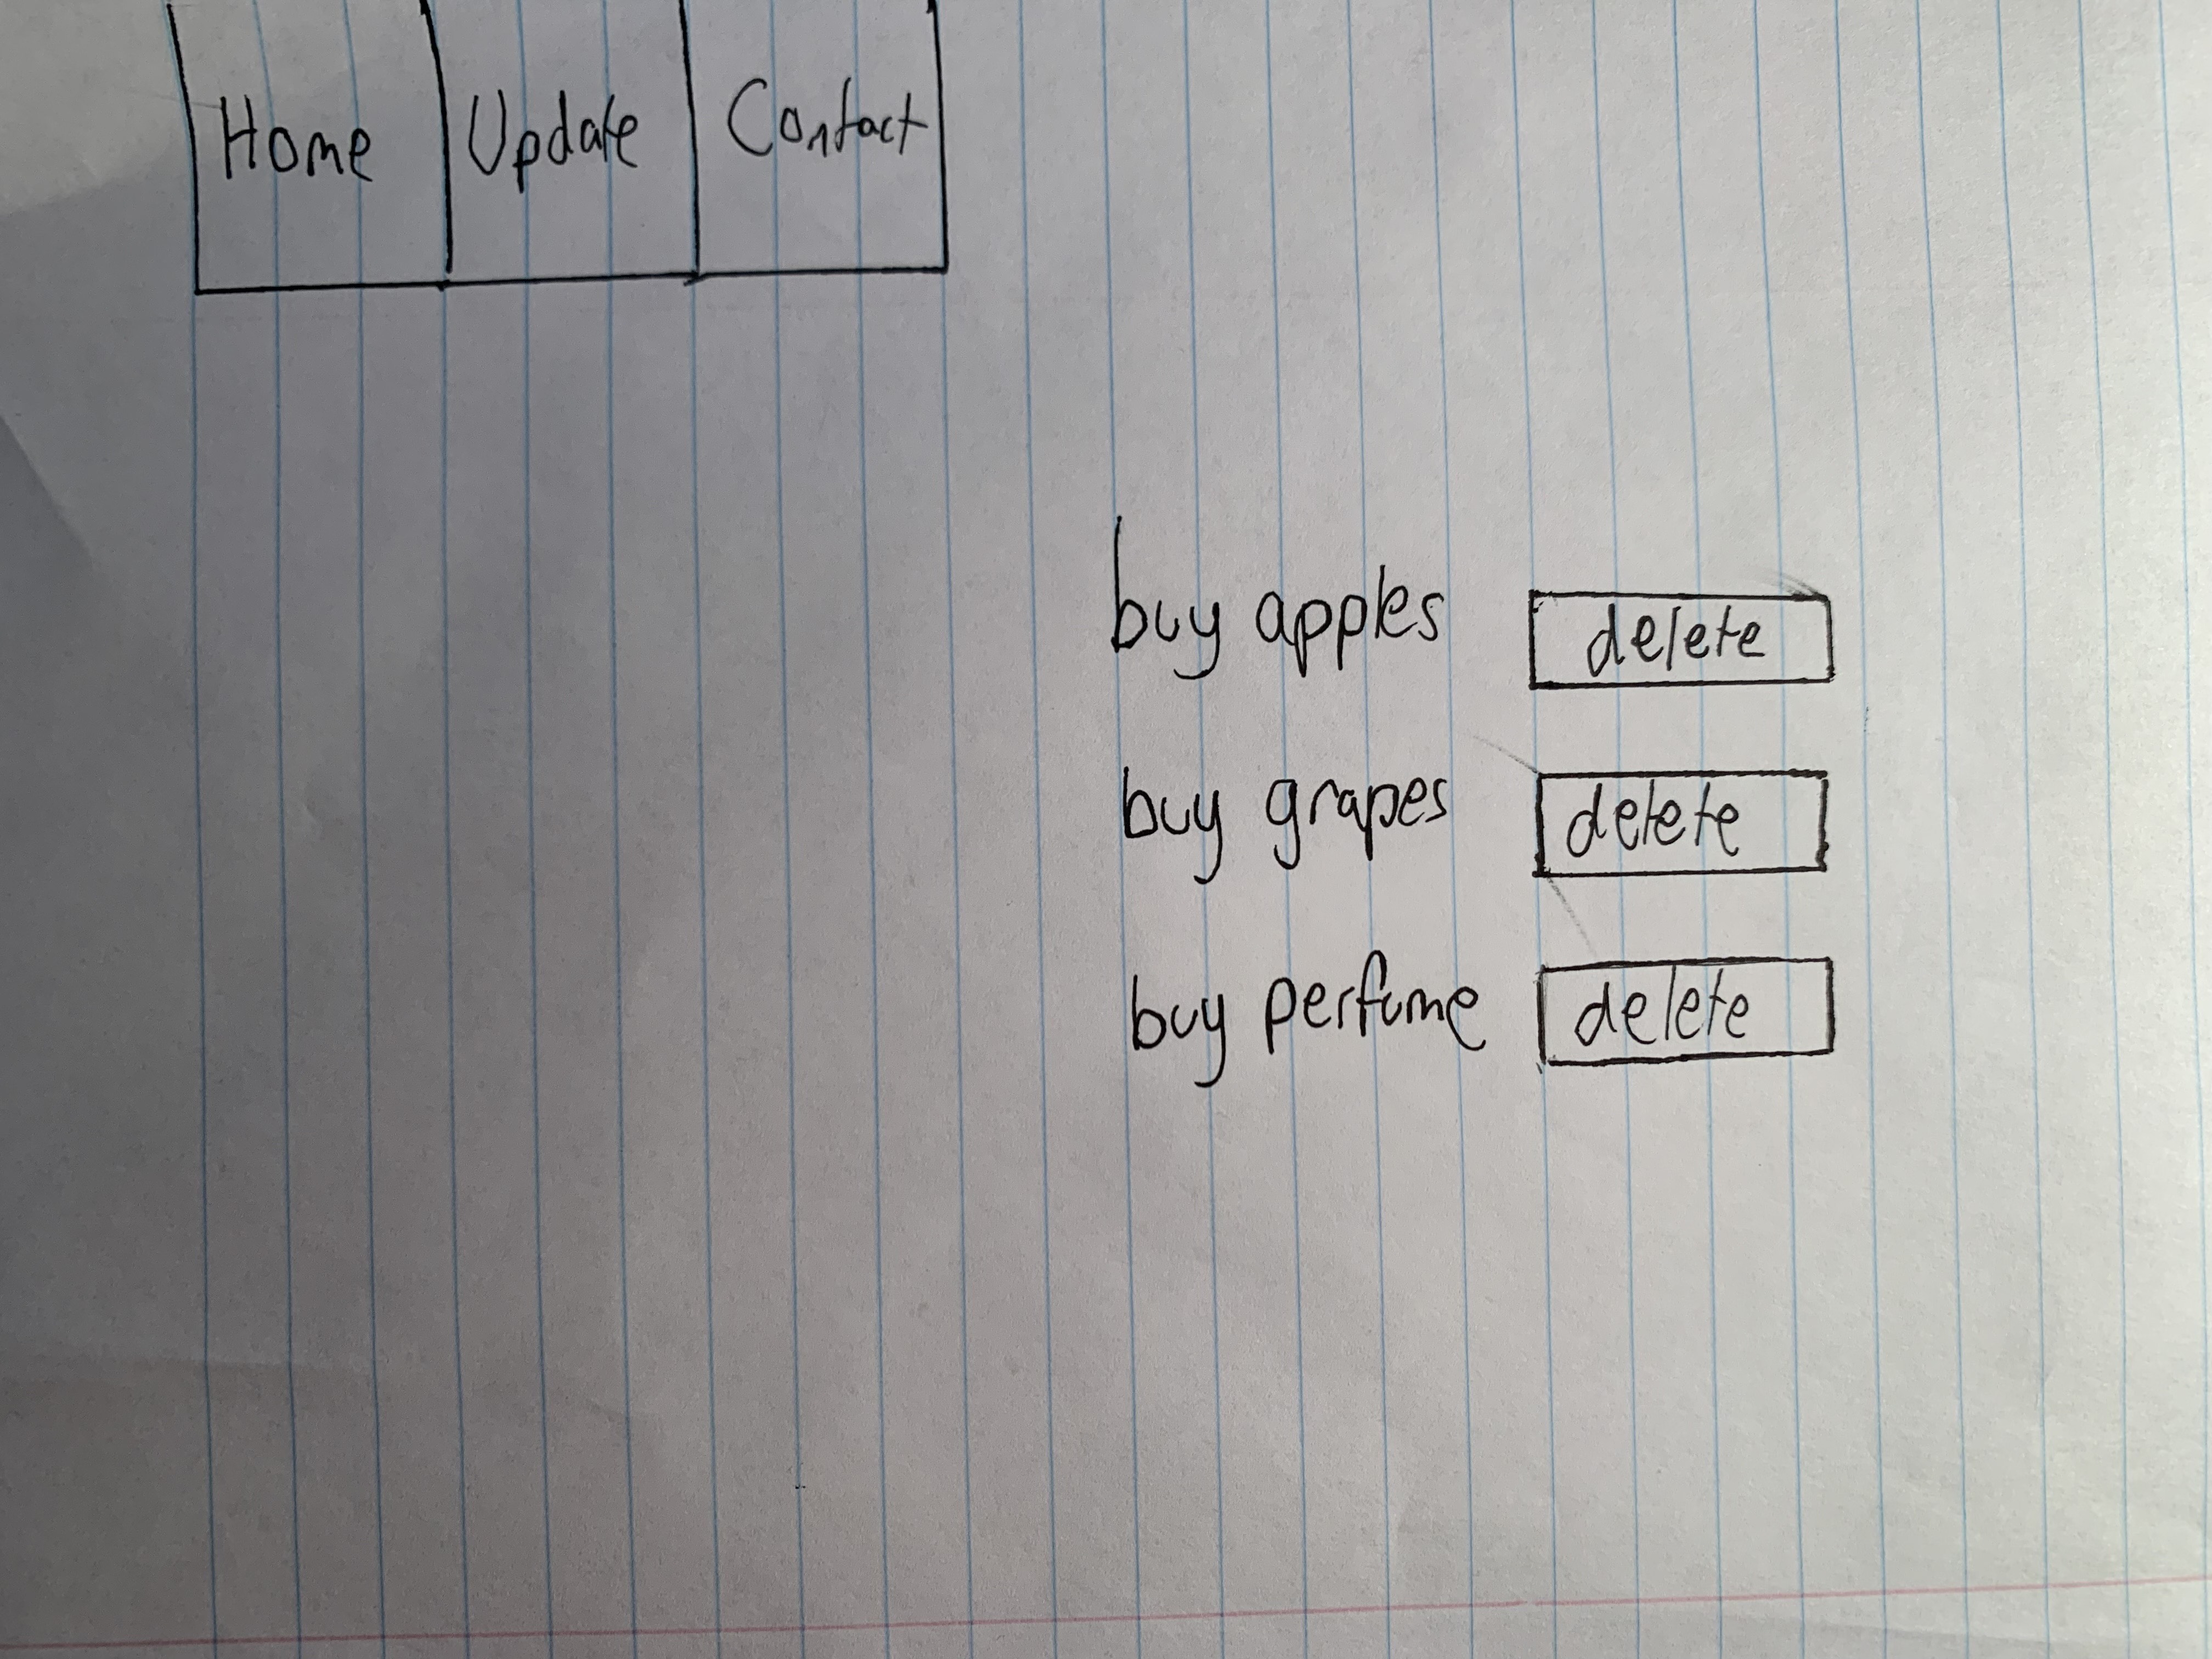 Home Update Contact
buy apples delete
buy grapes delete
buy perfume delete